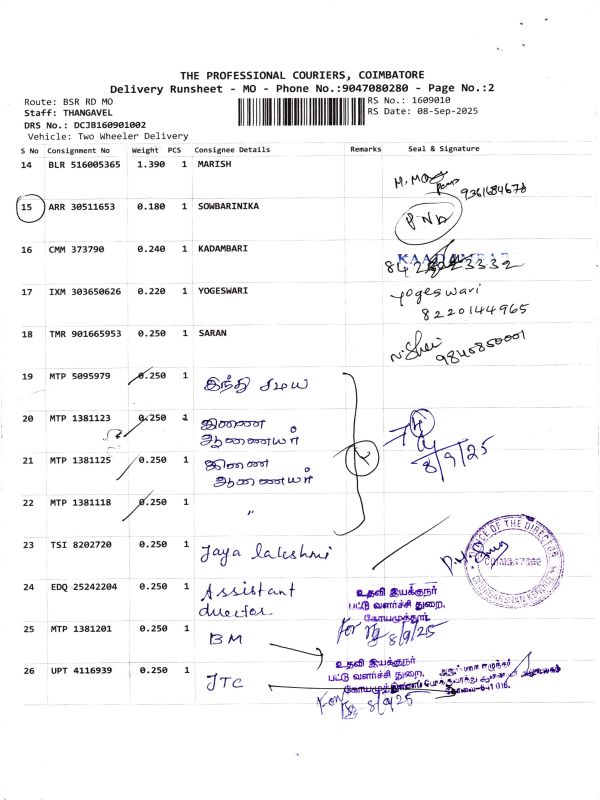 THE PROFESSIONAL COURIERS, COIMBATORE
Delivery Runsheet - MO - Phone No.:9047080280 - Page No.:2
Route: BSR RD MO
RS No.: 1609010
Staff: THANGAVEL
RS Date: 08-Sep-2025
DRS No.: DCJB160901002
Vehicle: Two Wheeler Delivery
S No Consignment No Weight PCS Consignee Details Remarks Seal & Signature
14 BLR 516005365 1.390 1 MARISH
9361684678
15 ARR 30511653 0.180 1 SOWBARINIKA
16 CMM 373790 0.240 1 KADAMBARI
17 IXM 303650626 0.220 1 YOGESWARI Yogeswari
8220144965
18 TMR 901665953 0.250 1 SARAN
9840850001
19 MTP 5095979 0.250 1 இந்து சமய
20 MTP 1381123 0.250 1 இணை
ஆணையர்
8/9/25
21 MTP 1381125 0.250 1 இணை
ஆணையர்
4
22 MTP 1381118 0.250 1 "
23 TSI 8202720 0.250 1 Jaya lakshmi
OFFICE OF THE DIRECTOR
COIMBATORE
24 EDQ 25242204 0.250 1 Assistant
director
உதவி இயக்குநர்
பட்டு வளர்ச்சி துறை,
கோயமுத்தூர்.
For 8/9/25
25 MTP 1381201 0.250 1 BM
26 UPT 4116939 0.250 1 JTC
உதவி இயக்குநர்
பட்டு வளர்ச்சி துறை,
For 8/9/25